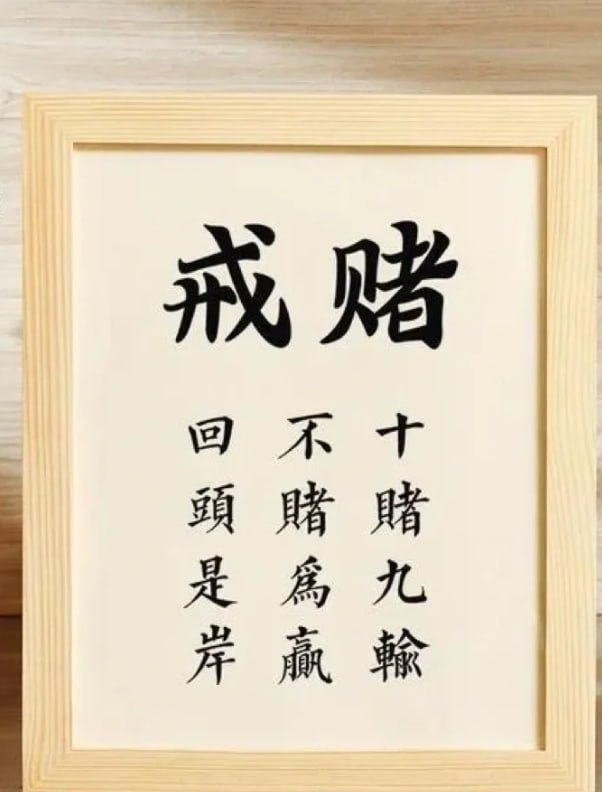 戒赌
十賭九輸
不賭為贏
回頭是岸